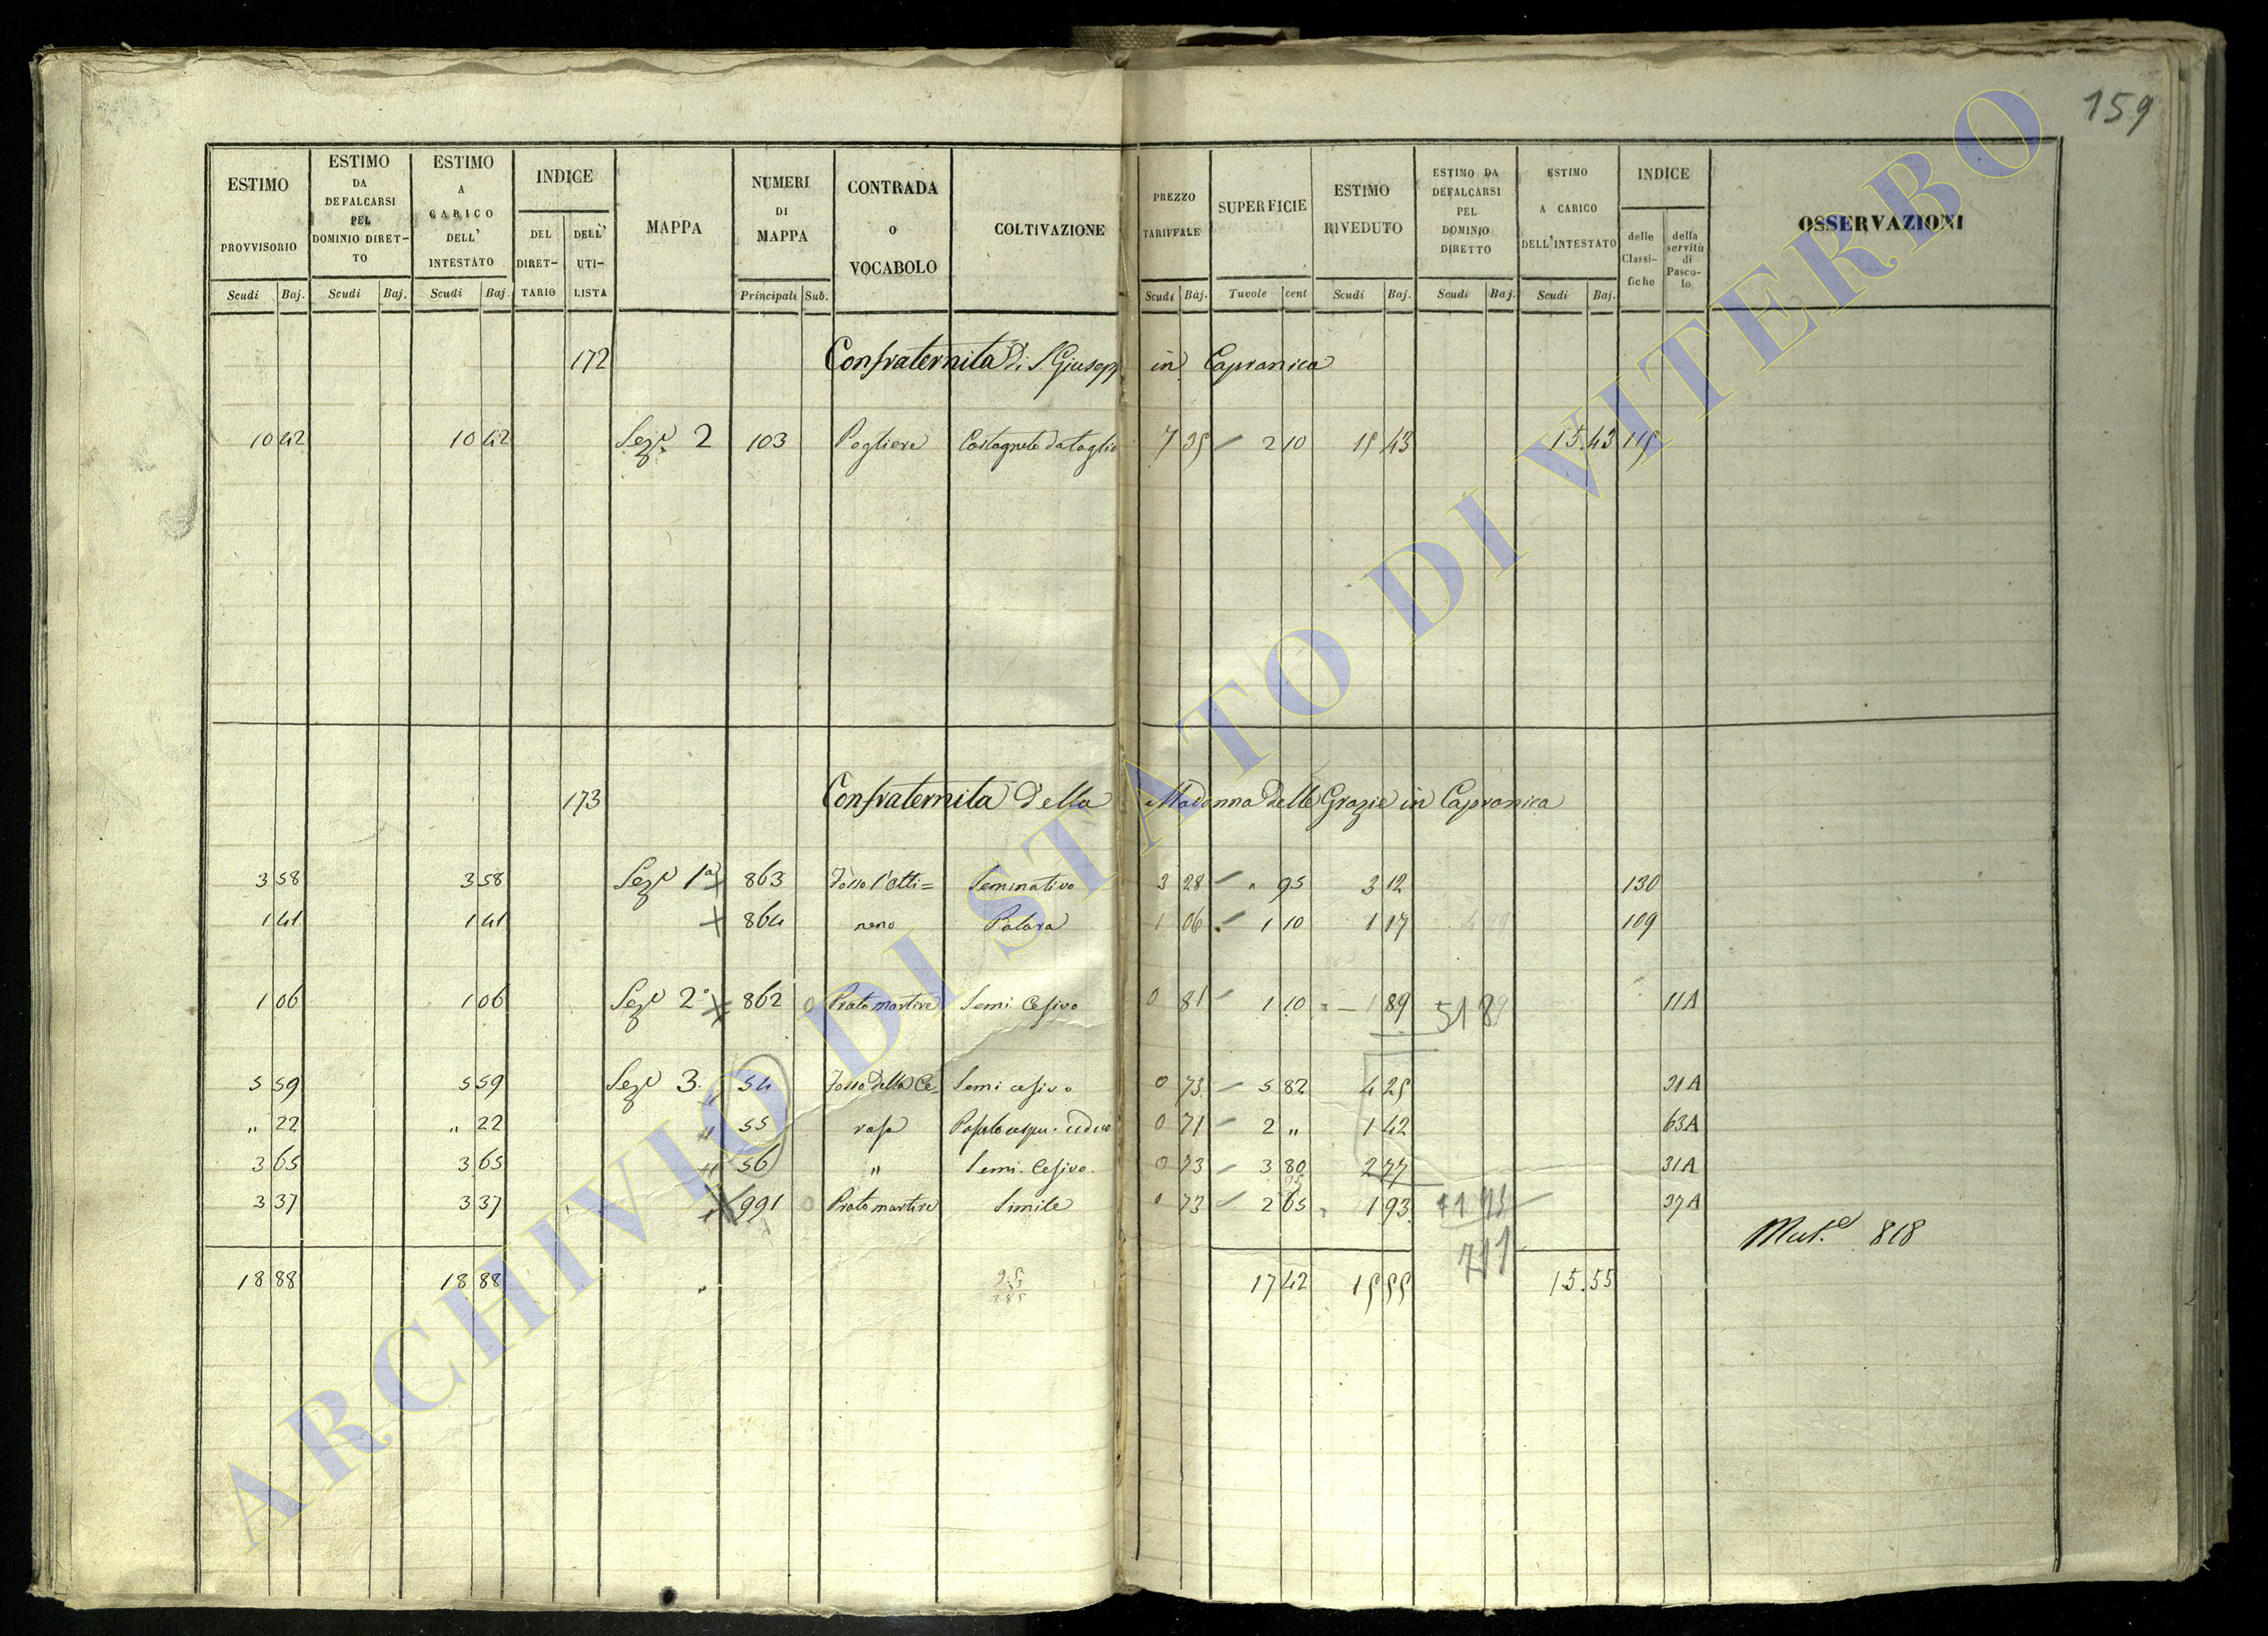 159
ESTIMO PROVVISORIO Scudi Baj.
ESTIMO DA DEFALCARSI PEL DOMINIO DIRET- TO Scudi Baj.
ESTIMO A CARICO DELL' INTESTATO Scudi Baj.
INDICE DEL DIRET- TARIO DELL' UTI- LISTA
MAPPA
NUMERI DI MAPPA Principali Sub.
CONTRADA O VOCABOLO
COLTIVAZIONE
PREZZO TARIFFALE Scudi Baj.
SUPERFICIE Tavole cent
ESTIMO RIVEDUTO Scudi Baj.
ESTIMO DA DEFALCARSI PEL DOMINIO DIRETTO Scudi Baj.
ESTIMO A CARICO DELL'INTESTATO Scudi Baj.
INDICE delle Classi- fiche della servitù di Pasco- lo
OSSERVAZIONI
172 Confraternita di S Giusepp in Capranica
10 42 10 42 Sez.e 2 103 Pogliere Castagneto da taglio 7 35 2 10 15 43 15.43 115
173 Confraternita della Madonna delle Grazie in Capranica
3 58 3 58 Sez.e 1a 863 Fosso l'Otti= Seminativo 3 28 " 95 3 12 130
1 41 1 41 864 neno 1 06 1 10 1 17 109
1 06 1 06 Sez.e 2a 862 0 Prato martire Semi. Cesivo 0 81 1 10 = - 1 89 5189 11A
5 59 5 59 Sez.e 3. 54 Fosso della Ce= Semi cesivo 0 73 5 82 4 25 31A
" 22 " 22 " 55 rasa 0 71 2 " 1 42 63A
3 65 3 65 " 56 " Semi. Cesivo. 0 73 3 80 2 77 31A
3 37 3 37 991 0 Prato martire Simile 0 73 2 65 1 93 37A
Mut.e 818
18 88 18 88 17 42 15 55 15.55
ARCHIVIO DI STATO DI VITERBO